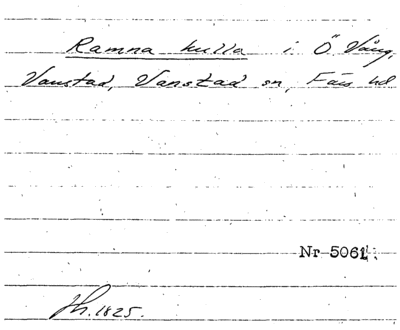 Ramna kulla i Ö. Vång,
Vanstad, Vanstad sn, Färs hd
Nr 5061.
1825.